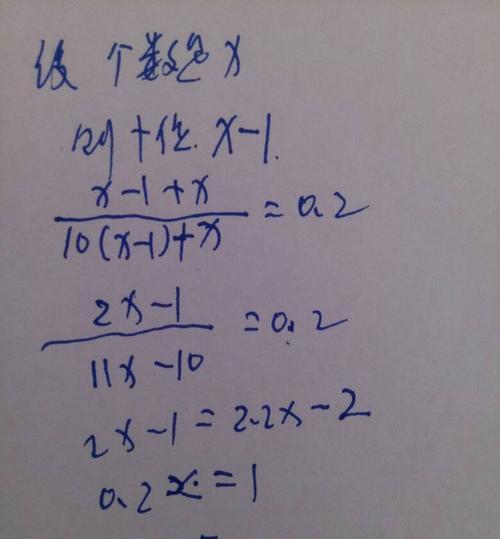 设 个数是 x
则十位 x-1
x-1+x
10(x-1)+x = 0.2
2x-1
11x-10 = 0.2
2x-1=2.2x-2
0.2x=1